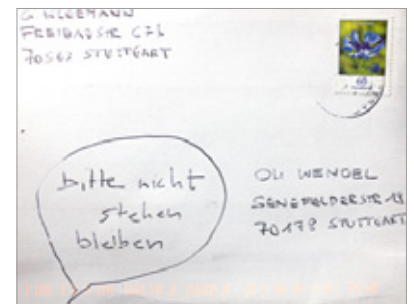 G. KLEEMANN
FREIBADSTR. C71
70563 STUTTGART
60
bitte nicht
stehen
bleiben
OLI WENDEL
SENEFELDERSTR. 18
70178 STUTTGART